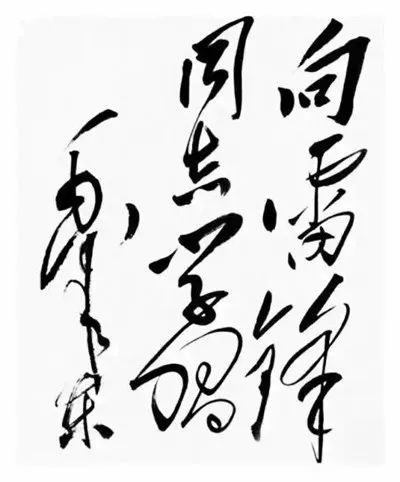 向雷锋
同志学习
毛泽东